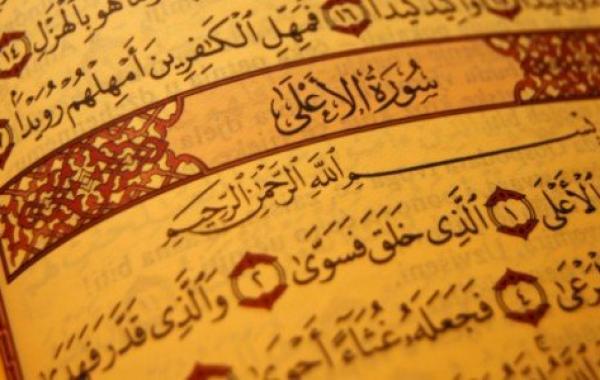 وَأَكِيدُ كَيْدًا ١٦ فَمَهِّلِ الْكَٰفِرِينَ أَمْهِلْهُمْ رُوَيْدًا
وَمَا هُوَ بِالْهَزْلِ ١٤
سُورَةُ الْأَعْلَىٰ
بِسْمِ اللَّهِ الرَّحْمَٰنِ الرَّحِيمِ
الْأَعْلَى ١ الَّذِي خَلَقَ فَسَوَّىٰ ٢ وَالَّذِي قَدَّرَ فَهَدَىٰ
٤ فَجَعَلَهُ غُثَاءً أَحْوَىٰ